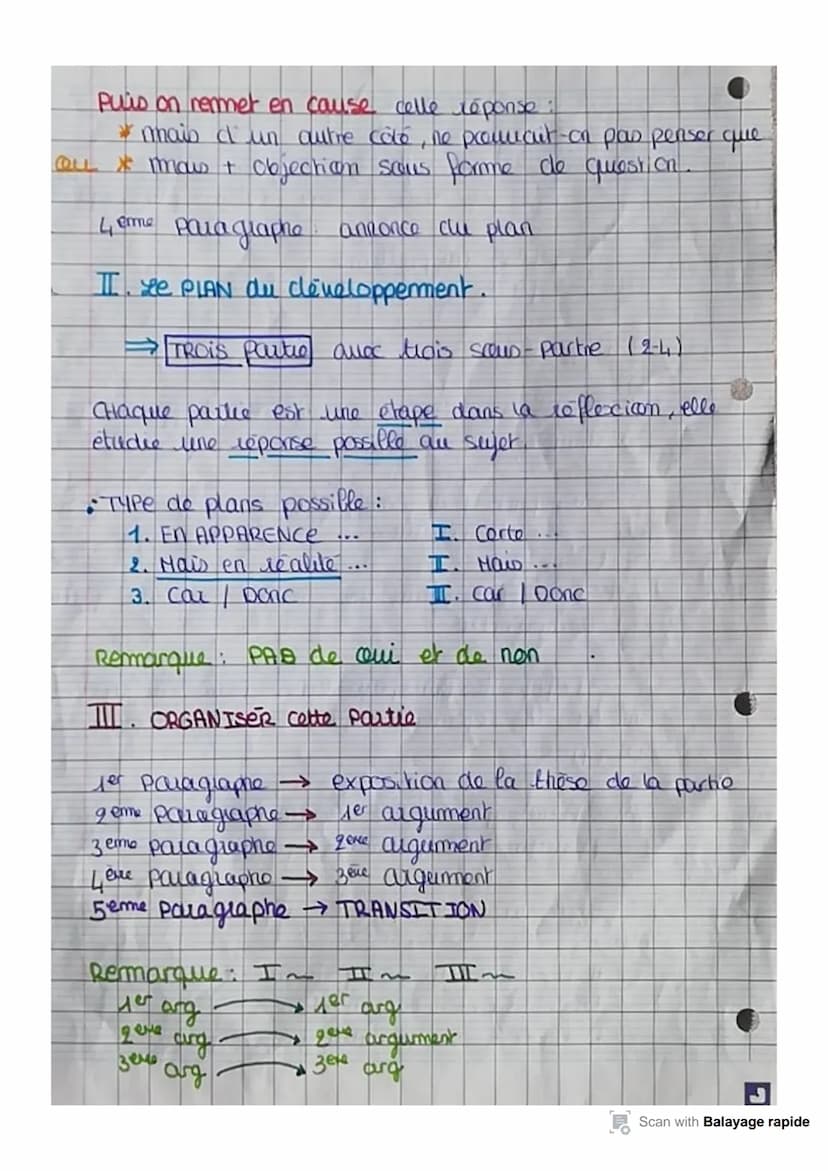 Puis on remet en cause cette réponse :
* mais d'un autre côté, ne pourrait-on pas penser que
ou * mais + objection sous forme de question.
4ème paragraphe : annonce du plan
II. Le PLAN du développement.
⇒ TROIS Partie avec trois sous-partie (2-4)
Chaque partie est une étape dans la réflexion, elle
étudie une réponse possible au sujet.
• TYPE de plans possible :
1. EN APPARENCE ... I. Certe ...
2. Mais en réalité ... II. Mais ...
3. Car / Donc III. Car / Donc
Remarque : PAS de oui et de non .
III. ORGANISER cette partie
1er paragraphe → exposition de la thèse de la partie
2ème paragraphe → 1er argument
3eme paragraphe → 2ème argument
4ème paragraphe → 3ème argument
5eme paragraphe → TRANSITION
Remarque : I ~ II ~ III ~
1er arg → 1er arg
2ème arg → 2ème argument
3ème arg → 3ème arg
J
Scan with Balayage rapide